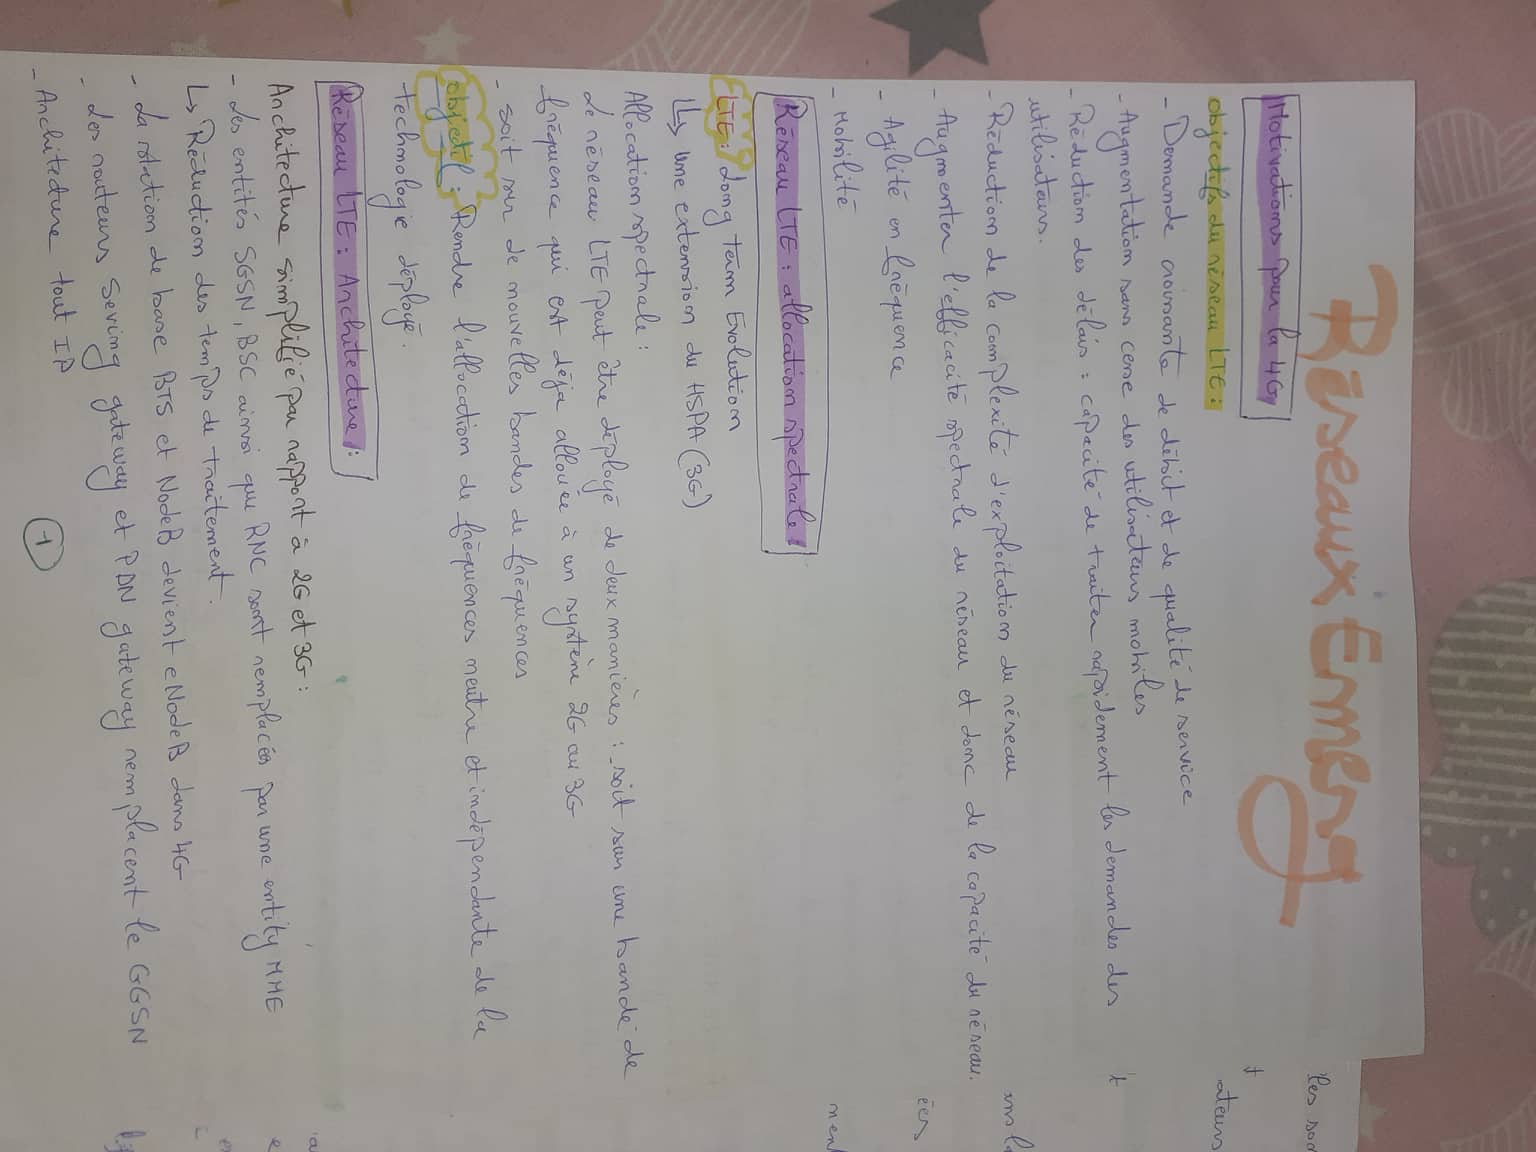 Réseaux Emerg
Motivations pour la 4G
objectifs du réseau LTE :
- Demande croissante de débit et de qualité de service
- Augmentation sans cesse des utilisateurs mobiles
- Réduction des délais : capacité de traiter rapidement les demandes des
utilisateurs.
- Réduction de la complexité d'exploitation du réseau
- Augmenter l'efficacité spectrale du réseau et donc de la capacité du réseau.
- Agilité en fréquence
- Mobilité
Réseau LTE : allocation spectrale :
LTE : Long term Evolution
↳ Une extension du HSPA (3G)
Allocation spectrale :
Le réseau LTE peut être déployé de deux manières : - soit sur une bande de
fréquence qui est déja allouée à un système 2G ou 3G
- soit sur de nouvelles bandes de fréquences
objectif : Rendre l'allocation de fréquences neutre et indépendante de la
technologie déployé.
Réseau LTE : Architecture :
Architecture simplifié par rapport à 2G et 3G :
- Les entités SGSN, BSC ainsi que RNC sont remplacées par une entity MME
↳ Réduction des temps de traitement.
- La station de base BTS et NodeB devient eNodeB dans 4G
- Les routeurs Serving gateway et PDN gateway remplacent le GGSN
- Architecture tout IP
1
les
ateurs